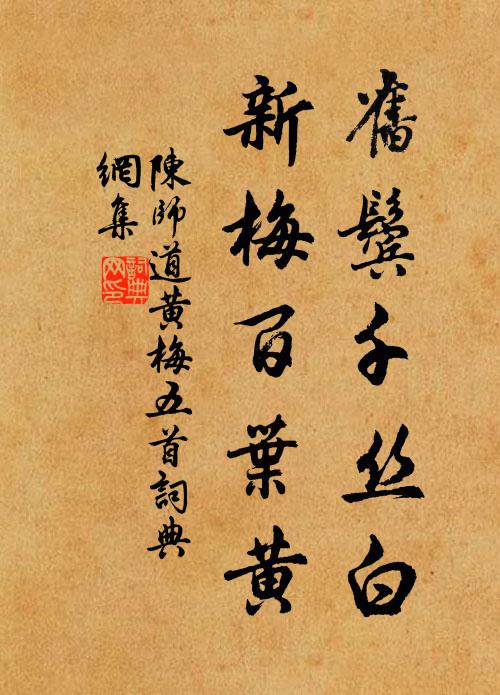 舊鬢千丝白
新梅百葉黄
陳師道黄梅五首詞典
網集
詞典网印